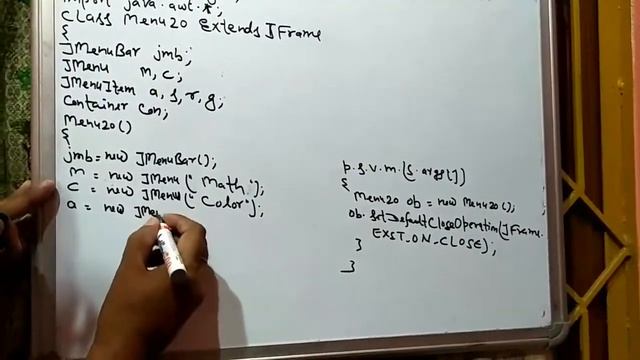 import java.awt.*;
Class Menu20 Extends JFrame
{
JMenuBar jmb;
JMenu m, c;
JMenuItem a, s, r, g;
Container con;
Menu20()
{
jmb = new JMenuBar();
m = new JMenu("Math");
c = new JMenu("Color");
a = new JMen
p.s.v.m.(S. args[])
{
Menu20 ob = new Menu20();
ob. SetDefaultCloseOperation(JFrame.
EXIT_ON_CLOSE);
}
}